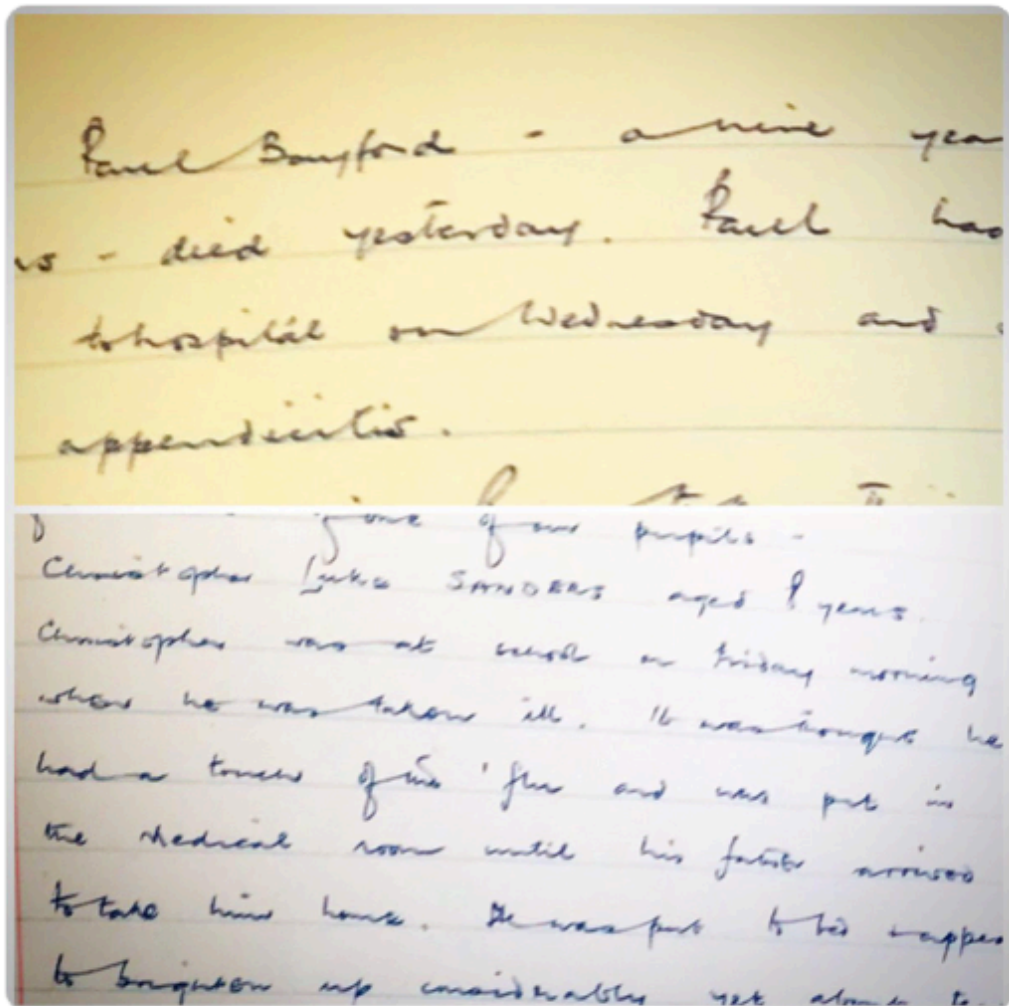 Paul Bayford - a nine yea
rs - died yesterday. Paul had
to hospital on Wednesday and
appendicitis.
one of our pupils -
Christopher Luke SANDERS aged 8 years.
Christopher was at school on Friday morning
when he was taken ill. It was thought he
had a touch of the 'flu and was put in
the Medical room until his father arrived
to take him home. He was put to bed & appea
to brighten up considerably yet